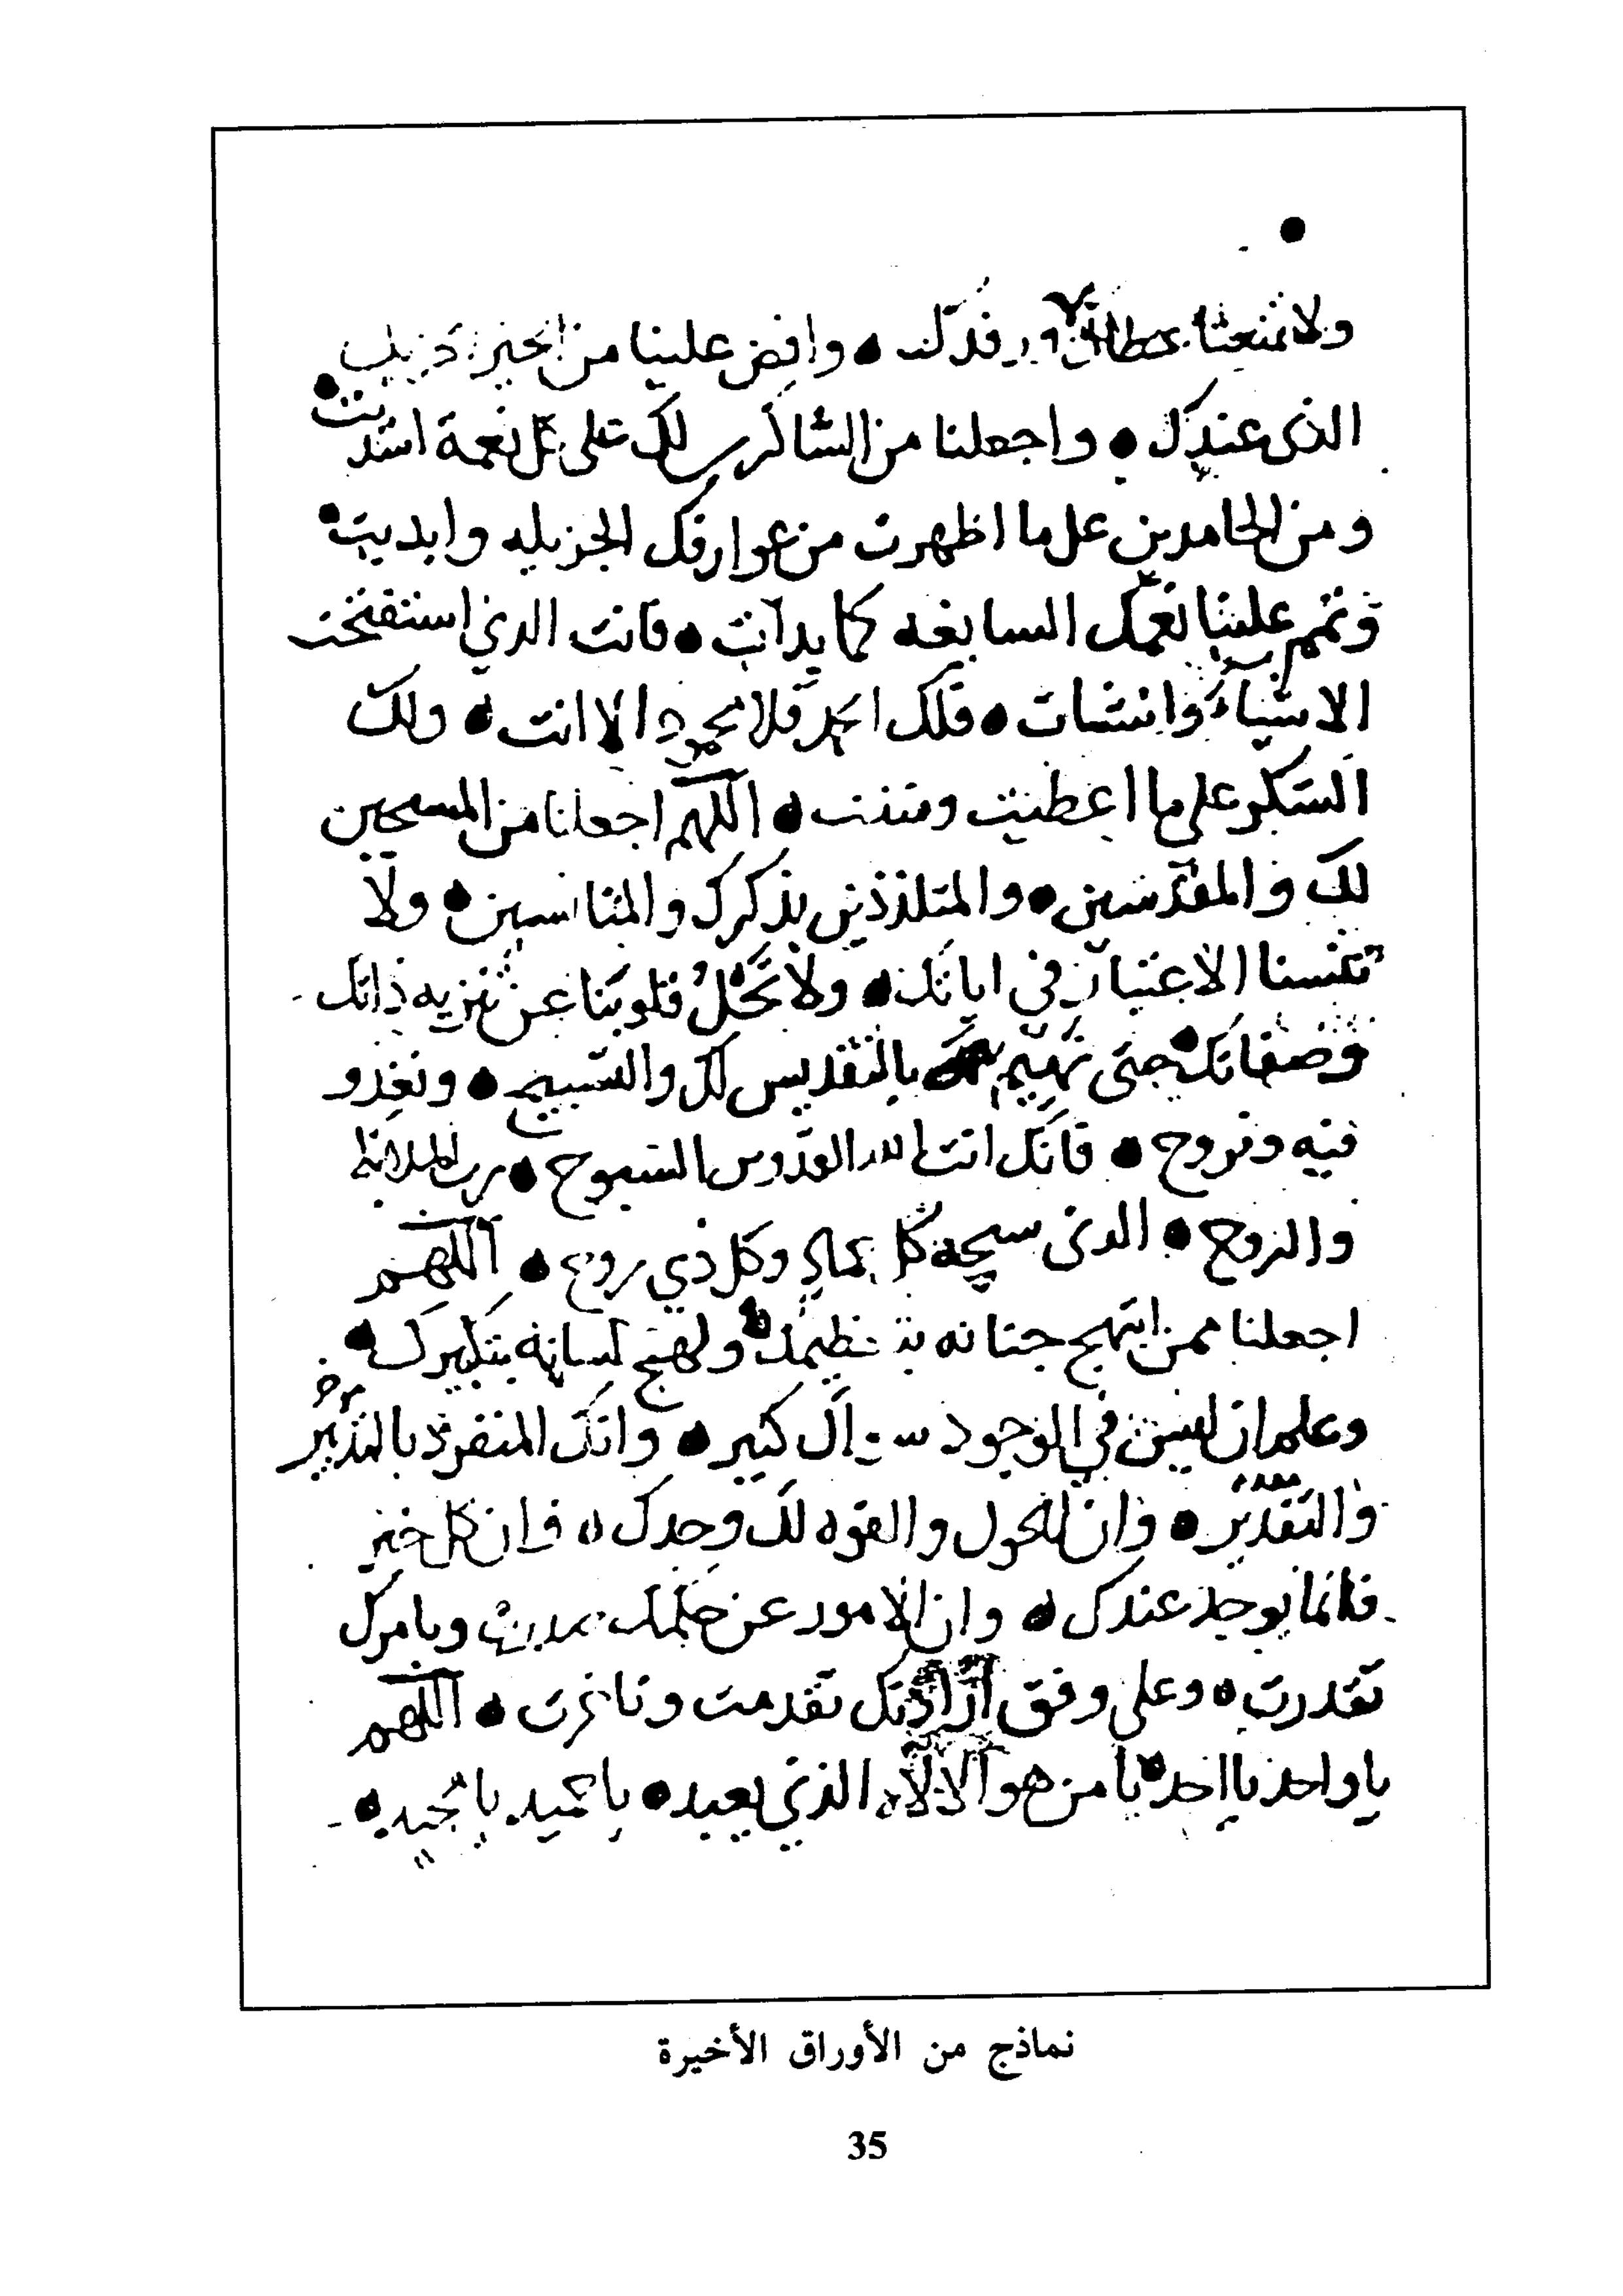 ولا تمنعنا عطاك ورفدك ● وافض علينا من الخير
الذى عندك ● واجعلنا من الشاكرين لك على كل نعمة اسديت ●
ومن الحامدين على ما اظهرت من عوارفك الجزيله وابديت ●
وتمم علينا نعمك السابغه كما بدات ● فانت الذي استفتحت
الاشياء وانشات ● فلك الحمد فلا محمود الا انت ● ولك
الشكر على ما اعطيت ومننت ● اللهم اجعلنا من المسبحين
لك والمقدسين ● والمتلذذين بذكرك والمتانسين ● ولا
تنسنا الاعتبار في اياتك ● ولا تخل قلوبنا عن تنزيه ذاتك
وصفاتك ● حتى نهيم بالتقديس لك والتسبيح ● ونغدو
فيه ونروح ● فانك انت الله القدوس السبوح ● رب الملائكة
والروح ● الذى سبحه كل جماد وكل ذي روح ● اللهم
اجعلنا ممن ابتهج جنانه بتعظيمك ● ولهج لسانه بتكبيرك ●
وعلم ان ليس في الوجود سواك كبير ● وانك المنفرد بالتدبير
والتقدير ● وان الحول والقوه لك وحدك ● وان كل خير
فانما يوجد عندك ● وان الامور عن حكمك صدرت وبامرك
تقدرت ● وعلى وفق ارادتك تقدمت وتاخرت ● اللهم
يا واحد يا احد ● يا من هو الاله الذي يعبد ● يا حميد يا مجيد ●
نماذج من الأوراق الأخيرة
35